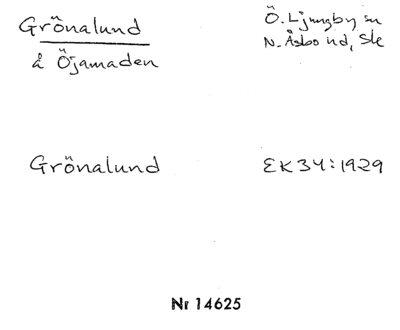 Grönalund
Ö. Ljungby sn
N. Åsbo hd, Sk
å Öjamaden
Grönalund
EK34:1929
Nr 14625